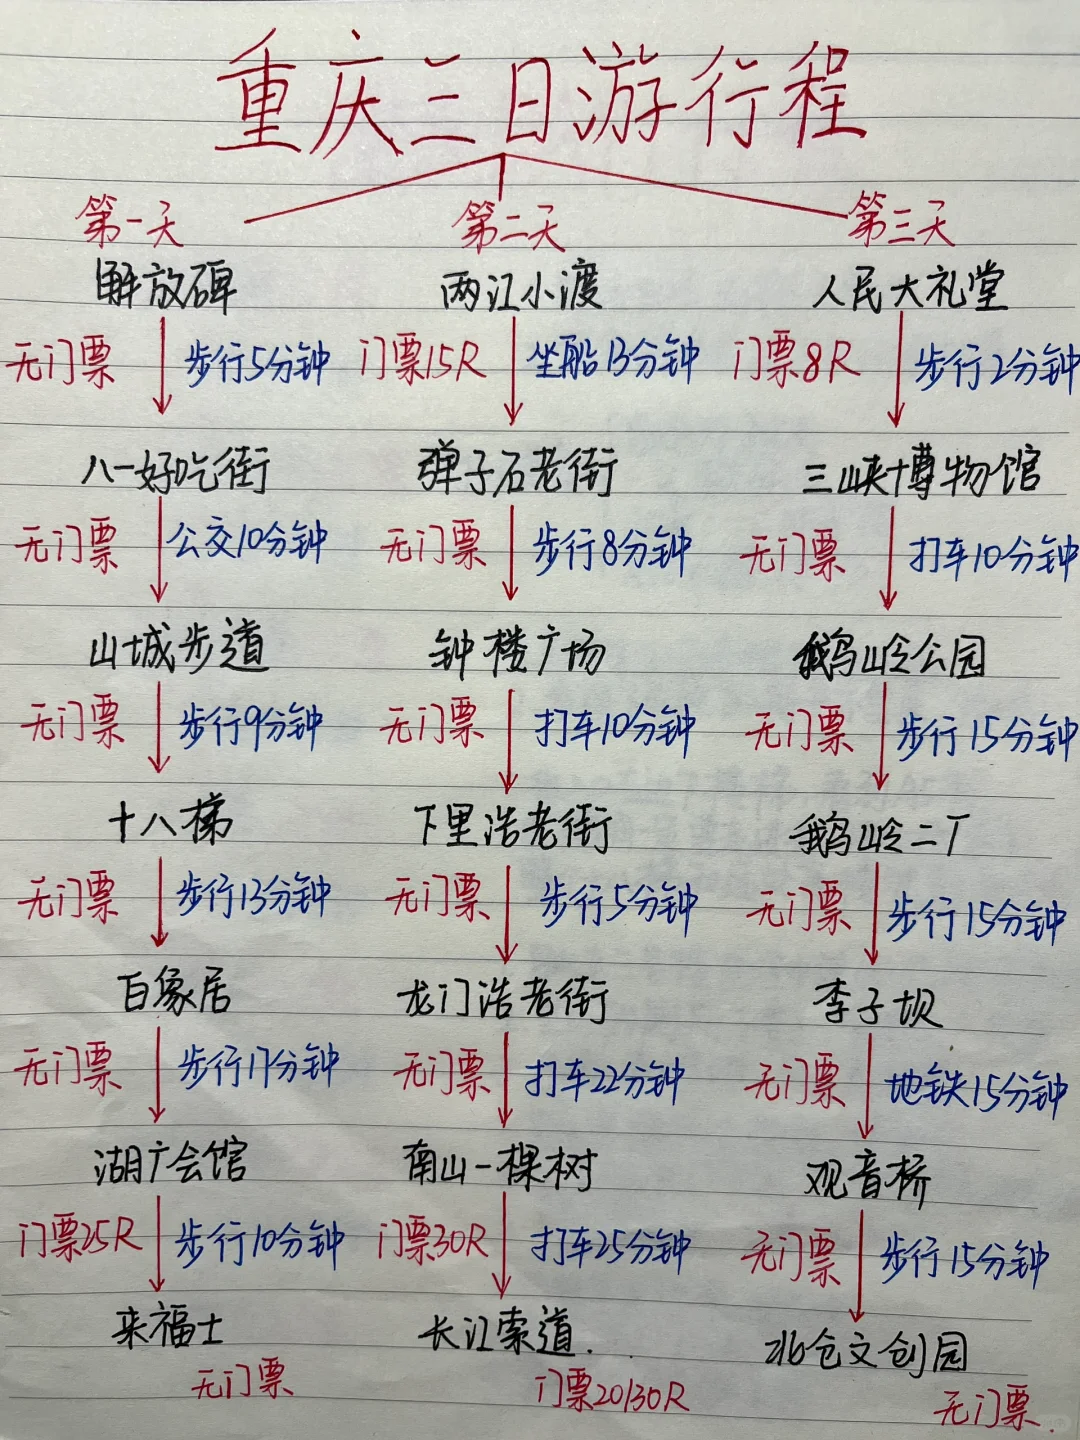 重庆三日游行程
第一天
解放碑
无门票 步行5分钟
八一好吃街
无门票 公交10分钟
山城步道
无门票 步行9分钟
十八梯
无门票 步行13分钟
百象居
无门票 步行17分钟
湖广会馆
门票25R 步行10分钟
来福士
无门票
第二天
两江小渡
门票15R 坐船13分钟
弹子石老街
无门票 步行8分钟
钟楼广场
无门票 打车10分钟
下里浩老街
无门票 步行5分钟
龙门浩老街
无门票 打车22分钟
南山一棵树
门票30R 打车25分钟
长江索道.
门票20/30R
第三天
人民大礼堂
门票8R 步行2分钟
三峡博物馆
无门票 打车10分钟
鹅岭公园
无门票 步行15分钟
鹅岭二厂
无门票 步行15分钟
李子坝
无门票 地铁15分钟
观音桥
无门票 步行15分钟
北仓文创园
无门票.